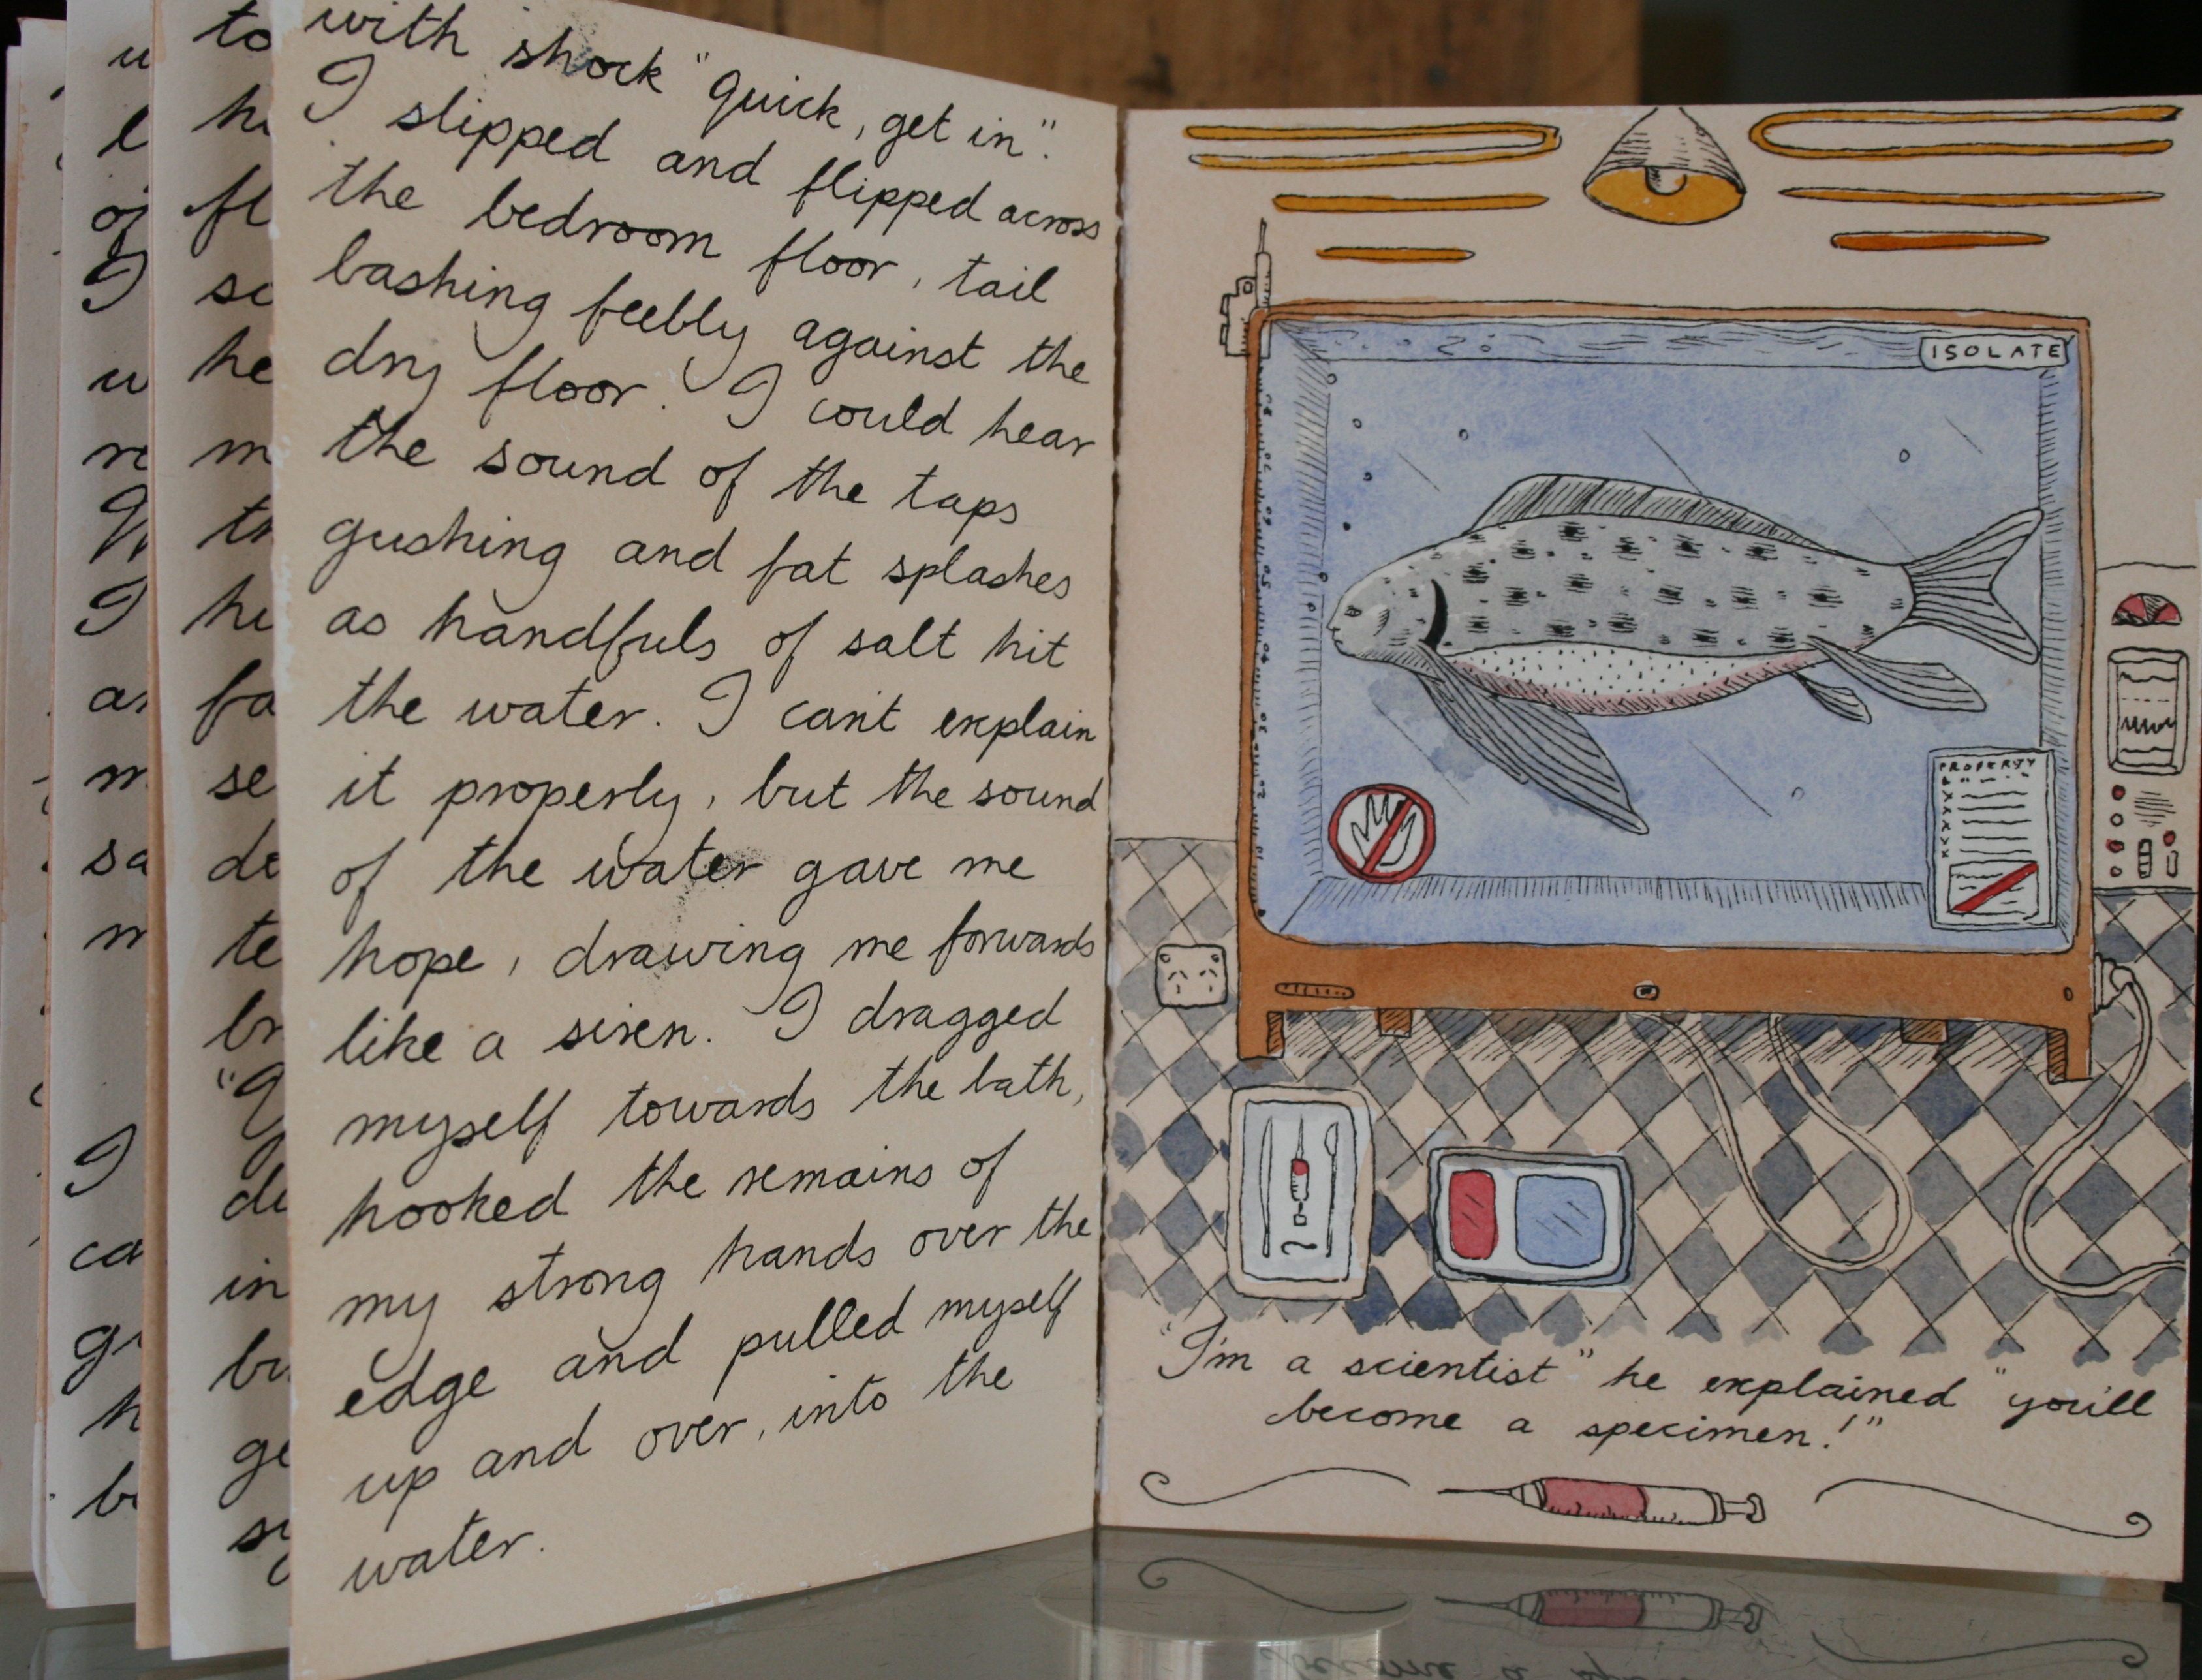 with shock "Quick, get in".
I slipped and flipped across
the bedroom floor, tail
bashing feebly against the
dry floor. I could hear
the sound of the taps
gushing and fat splashes
as handfuls of salt hit
the water. I can't explain
it properly, but the sound
of the water gave me
hope, drawing me forwards
like a siren. I dragged
myself towards the bath,
hooked the remains of
my strong hands over the
edge and pulled myself
up and over, into the
water.
ISOLATE
PROPERTY
"I'm a scientist" he explained "you'll
become a specimen!"